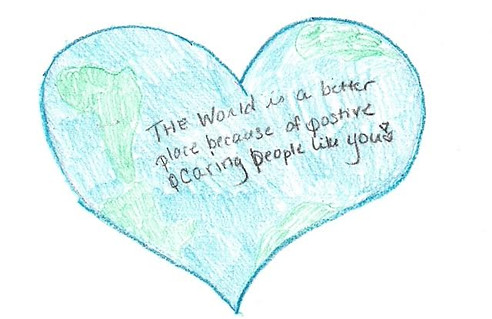 THE World is a better
place because of postive
& caring people like you